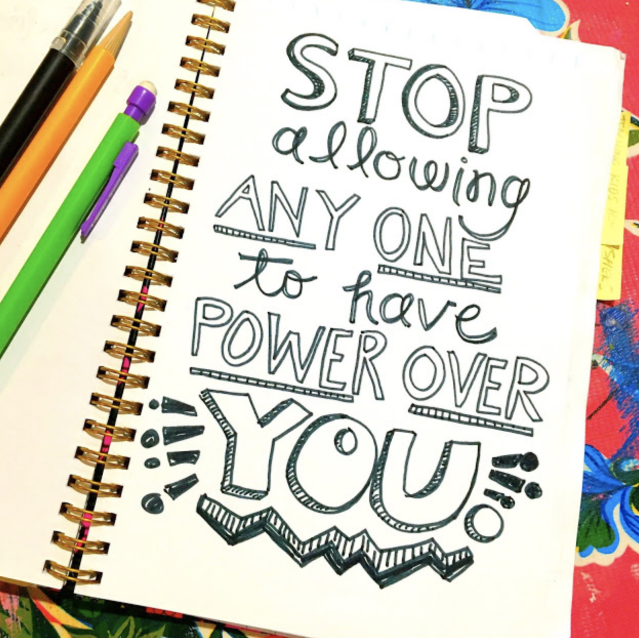 STOP
allowing
ANY ONE
to have
POWER OVER
YOU